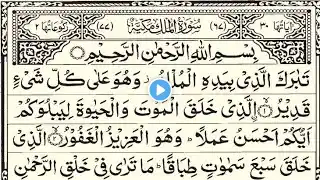 اٰيَاتُهَا ٣٠ (٦٧) سُوْرَةُ الْمُلْكِ مَكِّيَّةٌ (٧٧) رُكُوْعَاتُهَا ٢
بِسْمِ اللّٰهِ الرَّحْمٰنِ الرَّحِيْمِ
تَبٰرَكَ الَّذِيْ بِيَدِهِ الْمُلْكُ وَهُوَ عَلٰى كُلِّ شَيْءٍ
قَدِيْرٌ ۙ﴿١﴾ اِۨلَّذِيْ خَلَقَ الْمَوْتَ وَالْحَيٰوةَ لِيَبْلُوَكُمْ
اَيُّكُمْ اَحْسَنُ عَمَلًا ؕ وَهُوَ الْعَزِيْزُ الْغَفُوْرُ ۙ﴿٢﴾ الَّذِيْ
خَلَقَ سَبْعَ سَمٰوٰتٍ طِبَاقًا ؕ مَا تَرٰى فِيْ خَلْقِ الرَّحْمٰنِ